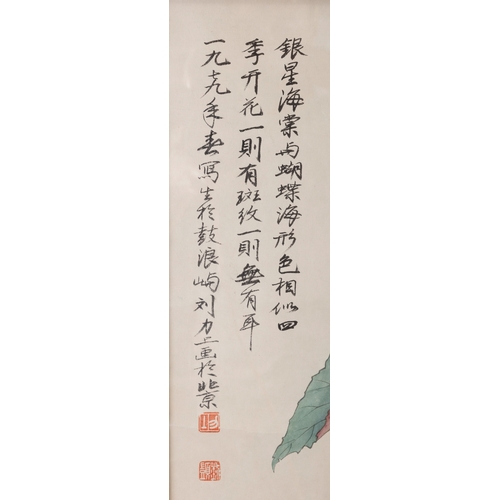 銀星海棠与蝴蝶海形色相似四
季开花一則有斑纹一則無有耳
一九七九年春寫生於鼓浪屿刘力上画於北京